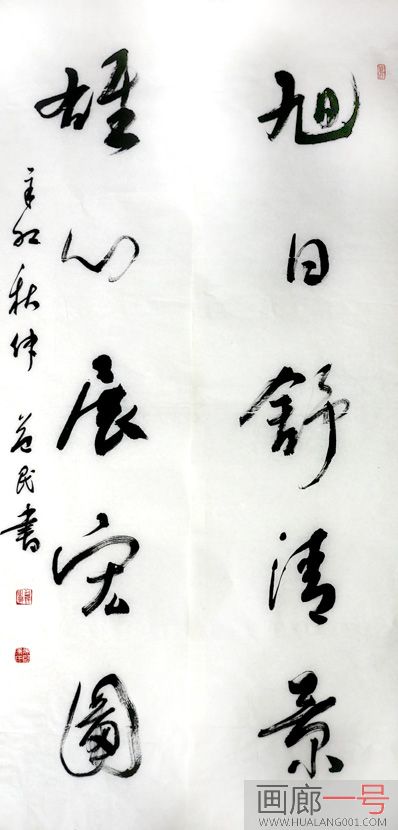 旭日舒清景
雄心展宏圖
辛卯秋仲 益民書
画廊一号
WWW.HUALANG001.COM